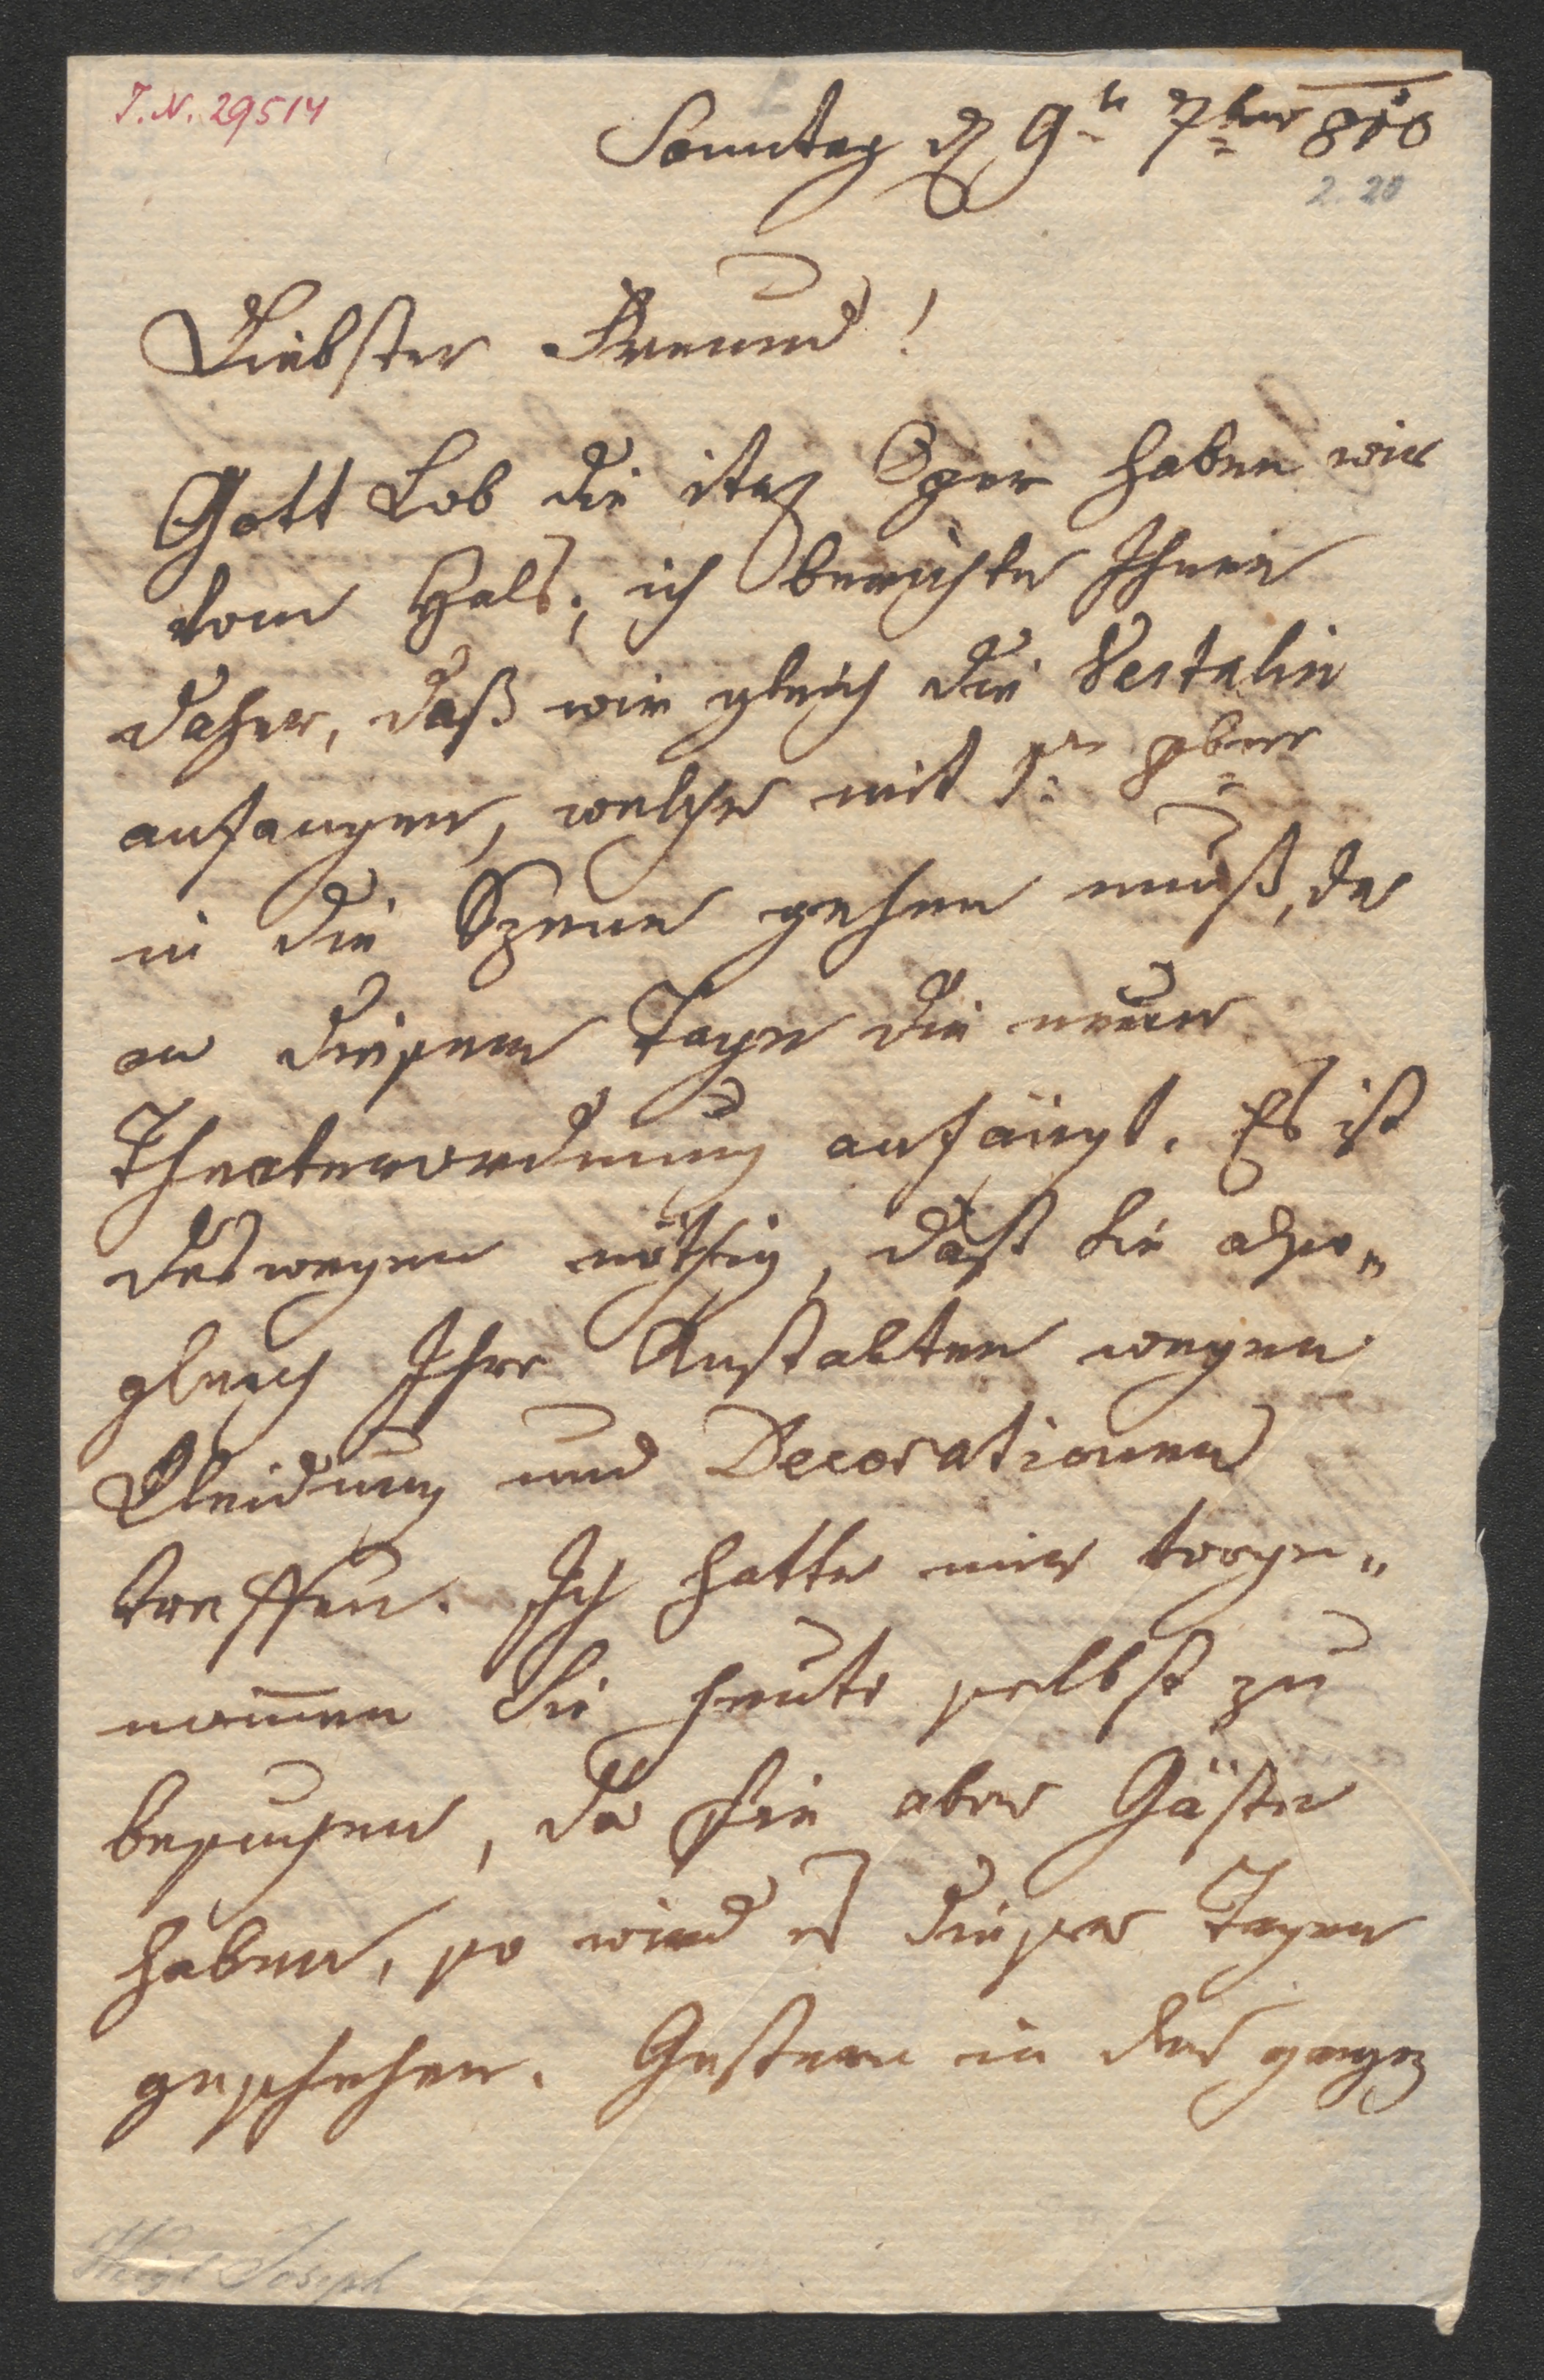 I.N. 29514
Sonntag d 9t 7ber 810
2. 20
Liebster Freund!
Gott Lob die Oper haben wir
vom Hals; ich berichte Ihnen
daher, daß wir gleich die Vestalin
anfangen, welche mit 1n 8ber
in die Szene gehen muß, da
an diesem Tage die neue
Theaterordnung anfängt. Es ist
deswegen nöthig, daß Sie also„
gleich Ihre Anstalten wegen
Kleidung und Decorationen
treffen. Ich hatte mir vorge„
nom̅en Sie heute selbst zu
besuchen, da Sie aber Gäste
haben, so wird es dieser Tagen
geschehen. Gestern in der
Weigl Joseph